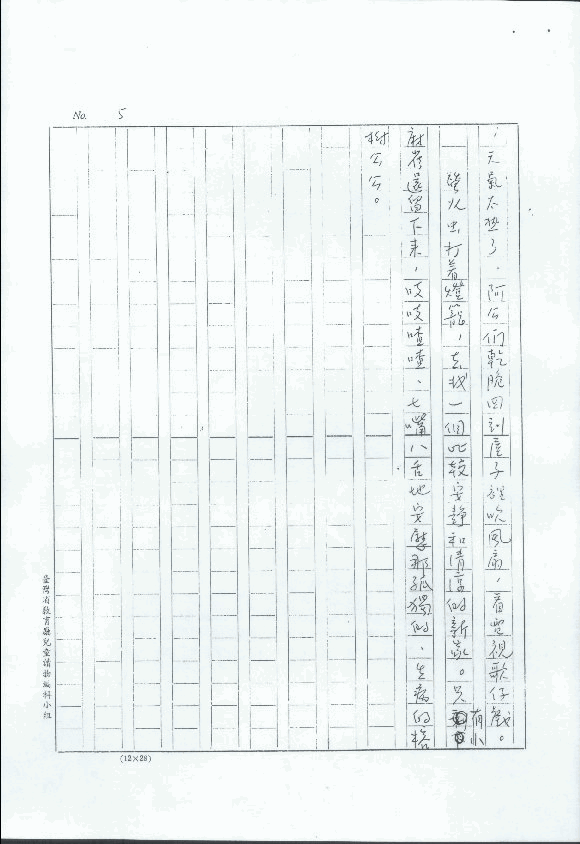 No. 5
，天氣太熱了，阿公們乾脆回到屋子裡吹風扇，看電視歌仔戲。
螢火虫打着燈籠，去找一個比較安靜和清涼的新家。只有小
麻雀還留下來，吱吱喳喳、七嘴八舌地安慰那孤獨的、生病的榕
樹公公。
臺灣省教育廳兒童讀物編輯小組
(12×28)